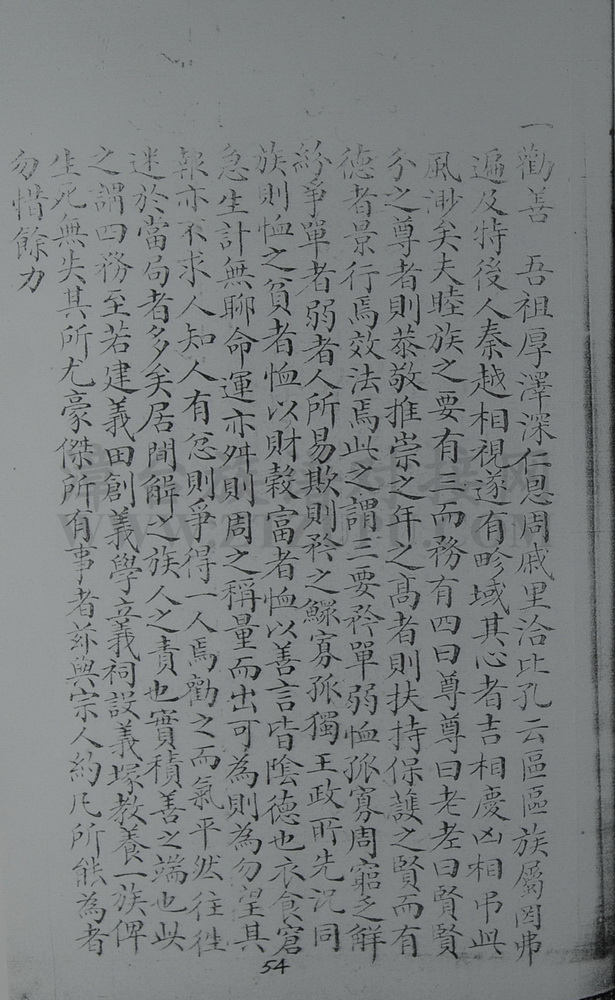 一勸善　吾祖厚澤深仁恩周戚里洽比孔云區區族屬罔弗
遍及特後人秦越相視遂有畛域其心者吉相慶凶相弔此
風渺矣夫睦族之要有三而務有四曰尊尊曰老老曰賢賢
分之尊者則恭敬推崇之年之高者則扶持保護之賢而有
德者景行焉效法焉此之謂三要矜單弱恤孤寡周窮乏解
紛爭單者弱者人所易欺則矜之鰥寡孤獨王政所先況同
族則恤之貧者恤以財穀富者恤以善言皆陰德也衣食窘
急生計無聊命運亦舛則周之稱量而出可為則為勿望其
報亦不求人知人有忿則爭得一人焉勸之而氣平然往往
迷於當局者多矣居間解之族人之責也實積善之端也此
之謂四務至若建義田創義學立義祠設義塚教養一族俾
生死無失其所尤豪傑所有事者茲與宗人約凡所能為者
勿惜餘力
54